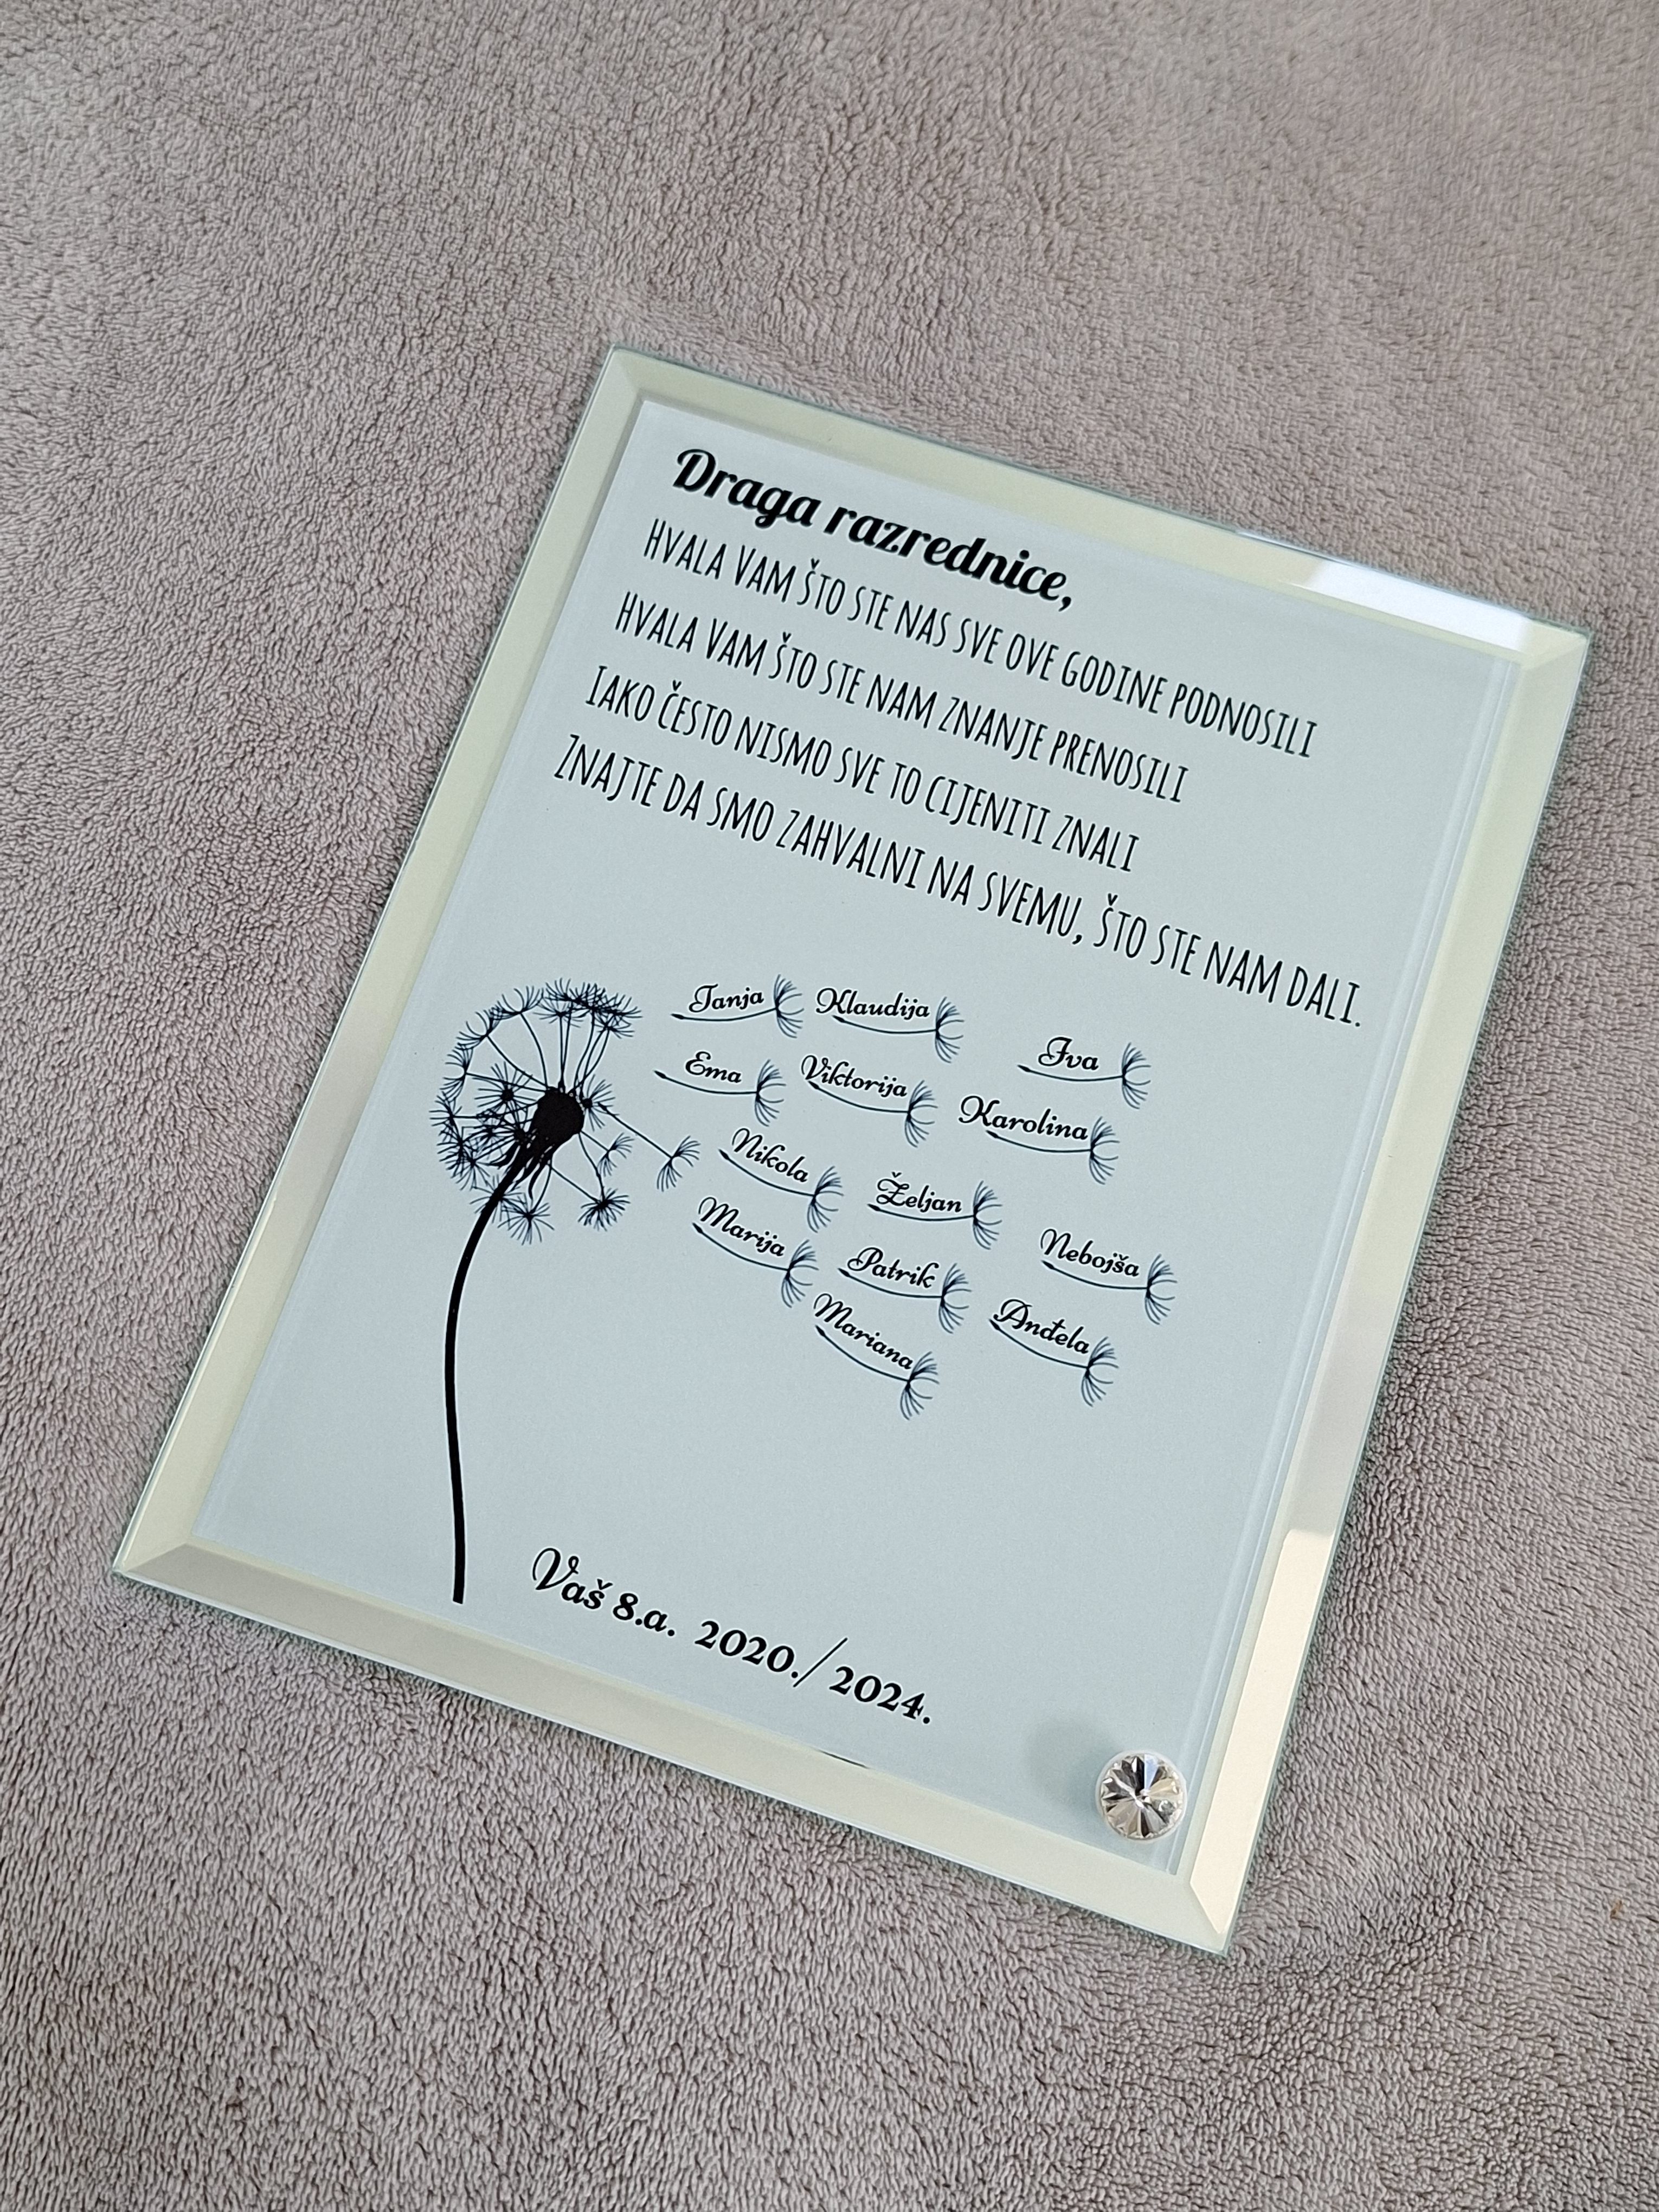 Draga razrednice,
Hvala Vam što ste nas sve ove godine podnosili
Hvala Vam što ste nam znanje prenosili
Iako često nismo sve to cijeniti znali
Znajte da smo zahvalni na svemu, što ste nam dali.
Tanja Klaudija Iva
Ema Viktorija Karolina
Nikola Željan Nebojša
Marija Patrik Anđela
Mariana
Vaš 8.a. 2020./2024.